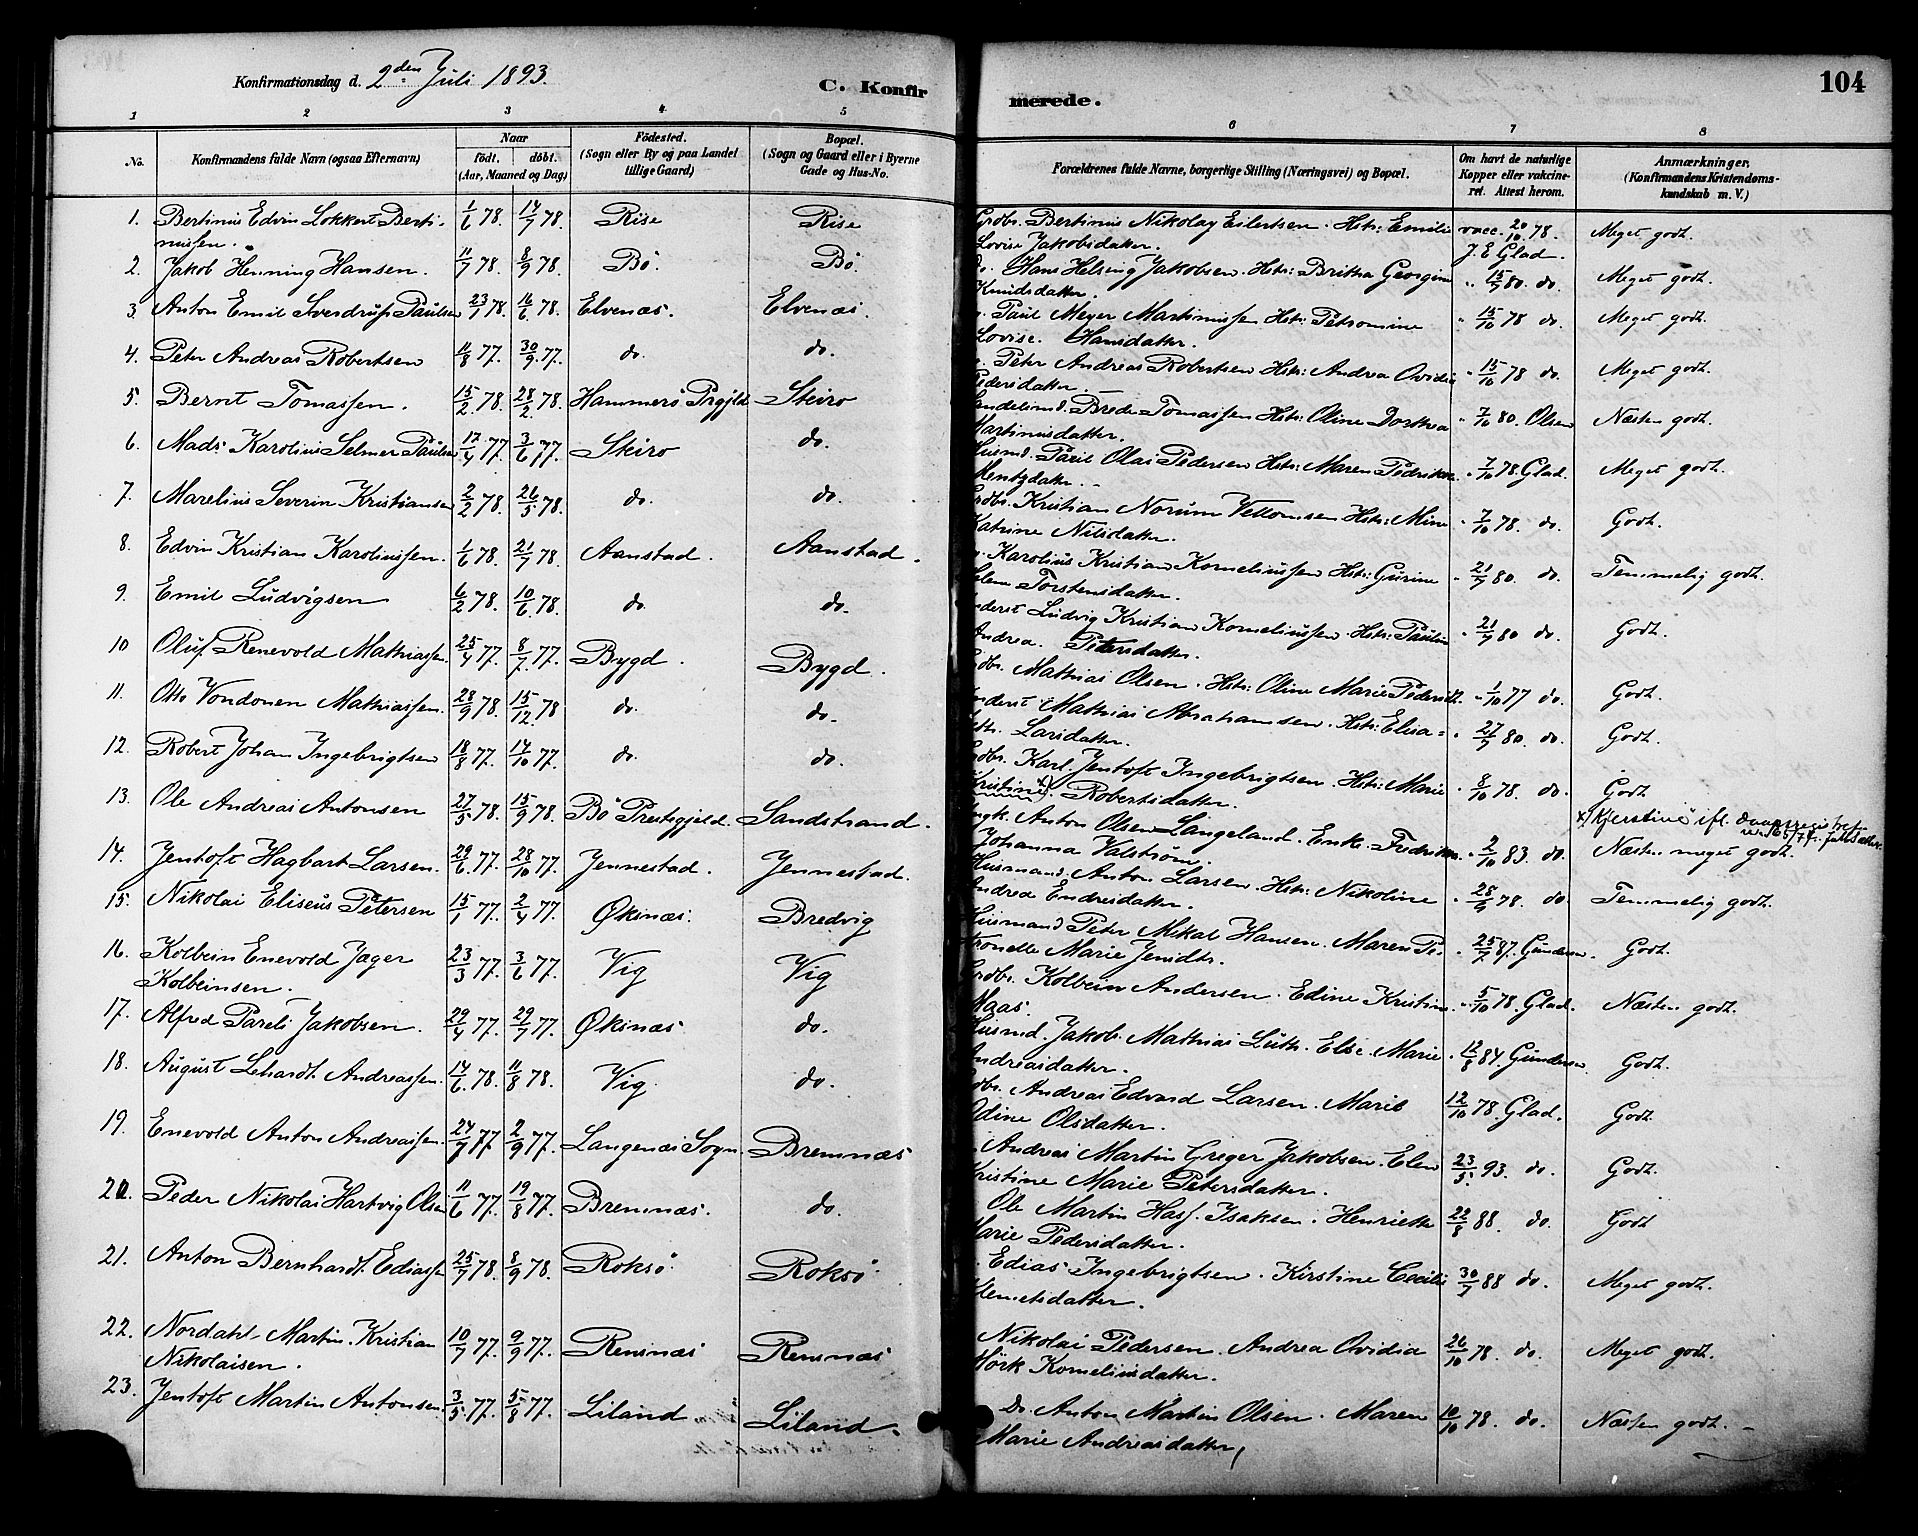 Konfirmationsdag d. 2den Juli 1893.
C. Konfirmerede.
104
1 2 3 4 5 6 7 8
No.
Konfirmandens fulde Navn (ogsaa Efternavn)
Naar
födt. döbt.
(Aar, Maaned og Dag)
Födested.
(Sogn eller By og paa Landet
tillige Gaard)
Bopæl.
(Sogn og Gaard eller i Byerne
Gade og Hus-No.
Forældrenes fulde Navne, borgerlige Stilling (Næringsvei) og Bopæl.
Om havt de naturlige
Kopper eller vakcine-
ret. Attest herom.
Anmærkninger.
(Konfirmandens Kristendoms-
kundskab m. V.)
1. Bertinus Edvin Lokkert Berti- 1/6 78. 14/7 78. Rise Rise Grdbr. Bertinus Nikolay Eilertsen. Hstr: Emilie vacc. 20/10 78. Meget godt.
nussen. Lovise Jakobsdatter. J. E Glad.
2. Jakob Henning Hansen. 11/7 78. 8/9 78. Bö. Bö. do. Hans Helsing Jakobsen. Hstr: Britha Georgine " 15/9 80. do. Meget godt.
Knudsdatter.
3. Anton Emil Sverdrup Paulsen 23/1 78. 16/6 78. Elvenæs. Elvenæs. Paul Meyer Martinussen Hstr: Petromine " 15/10 78 do. Meget godt.
Lovise. Hansdatter.
4. Peter Andreas Robertsen 11/8 77. 30/9 77. do. do. Peter Andreas Robertsen Hstr: Andrea Ovidia " 15/10 78 do. Meget godt.
Pedersdatter.
5. Bernt Tomassen. 15/2 78. 28/2 78. Hammerö Prgjld. Skiro Handelsmd. Brede Tomassen Hstr: Oline Dorthea " 7/10 80. Olsen Næsten godt.
Martinusdatter.
6. Mads Karolius Selmer Paulsen 17/4 77. 3/6 77. Skiro do. Husmd. Paul Olai Pedersen Hstr: Maren Fedrikke " 7/10 78. Glad. Meget godt.
Mentzdatter.
7. Marelius Severin Kristiansen 2/2 78. 26/5 78. do. do. Grdbr. Kristian Norum Vettomsen Hstr: Mine " 7/10 78. do. Godt.
Katrine Nilsdatter.
8. Edvin Kristian Karoliussen. 1/6 78. 21/7 78. Aanstad. Aanstad. Karolius Kristian Korneliussen Hstr: Gurine " 21/9 80. do. Temmelig godt.
Elene Torstensdatter.
9. Emil Ludvigsen 6/2 78. 10/6 78. do. do. Inderst Ludvig Kristian Korneliussen. Hstr: Pauline " 21/9 80 do. Godt.
Andrea. Petersdatter.
10 Oluf Renevold Mathiassen. 25/4 77. 8/7 77. Bygd. Bygd. Grdbr. Mathias Olsen. Hstr: Oline Marie Pedersdt. " 1/10 77 do. Godt.
11. Otto Vondonen Mathiassen. 28/9 78. 15/12 78 do. do. Inderst Mathias Abrahamsen. Hstr: Elisa= " 27/9 80. do. Godt.
beth. Larsdatter.
12. Robert Johan Ingebrigtsen 18/8 77. 14/10 77. do. do. Grdbr. Karl Jentoft Ingebrigtsen. Hstr: Marie " 8/10 78. do. Godt
Kristine x). Robertsdatter. x) Kjerstine ifl. daapsregistret
13. Ole Andreas Antonsen 27/5 78. 15/9 78. Bö Prestegjeld. Sandstrand. Anton Olsen Langeland. Enke. Fredrikke " 2/10 83. do. Næsten meget godt.
Johanna Valström.
14. Jentoft Hagbart Larsen. 29/6 77. 28/10 77. Jennestad. Jennestad. Husmand. Anton Larsen. Hstr: Nikoline " 28/9 78. do. Temmelig godt.
Andrea Endresdatter.
15. Nikolai Eliseus Petersen 15/1 77. 2/4 77. Öksnæs. Bredvig Husmand Peter Mikal Hansen. Maren Pe- " 25/7 87. Gundersen. Godt.
tronelle Marie Jensdtr.
16. Kolbein Enevold Jager 23/3 77. 3/6 77. Vig Vig Grdbr. Kolbein Andersen. Edine Kristine " 5/10 78. Glad. Næsten godt.
Kolbeinsen. Maas.
17. Alfred Pareli Jakobsen. 29/4 77. 29/7 77. Öksnæs do. Husmd. Jakob Mathias Luth. Else Marie " 12/8 84 Gundersen. Godt.
Andreasdatter.
18. August Lehardt Andreassen. 14/6 78. 11/8 78. Vig. do. Grdbr. Andreas Edvard Larsen. Marie 12/10 78. Glad. Godt.
Odine Olsdatter.
19. Enevold Anton Andreassen. 24/7 77. 2/9 77. Langenæs Sogn. Bremnæs Andreas Martin Greger Jakobsen. Elen 23/5 93. do. Godt.
Kristine Marie Petersdatter.
20. Peder Nikolai Hartvig Olsen 11/6 77. 19/8 77. Bremnæs. do. Ole Martin Hass Isaksen. Henriette 22/8 88. do. Godt
Marie Pedersdatter.
21. Anton Bernhardt Ediassen 25/7 78. 8/9 78. Roksö Roksö Edias Ingebrigtsen. Kirstine Cecilie 30/7 88 do. Meget godt.
Klemetsdatter.
22. Nordahl Martin Kristian 10/7 77. 9/9 77. Rensnæs Rensnæs Nikolai Pedersen. Andrea Ovidia 26/10 78. do. Meget godt.
Nikolaisen. Mörk Korneliusdatter.
23. Jentoft Martin Antonsen. 3/5 77. 5/8 77. Liland Liland. Do. Anton Martin Olsen. Maren 10/10 78. do. Næsten godt.
Marie Andreasdatter,